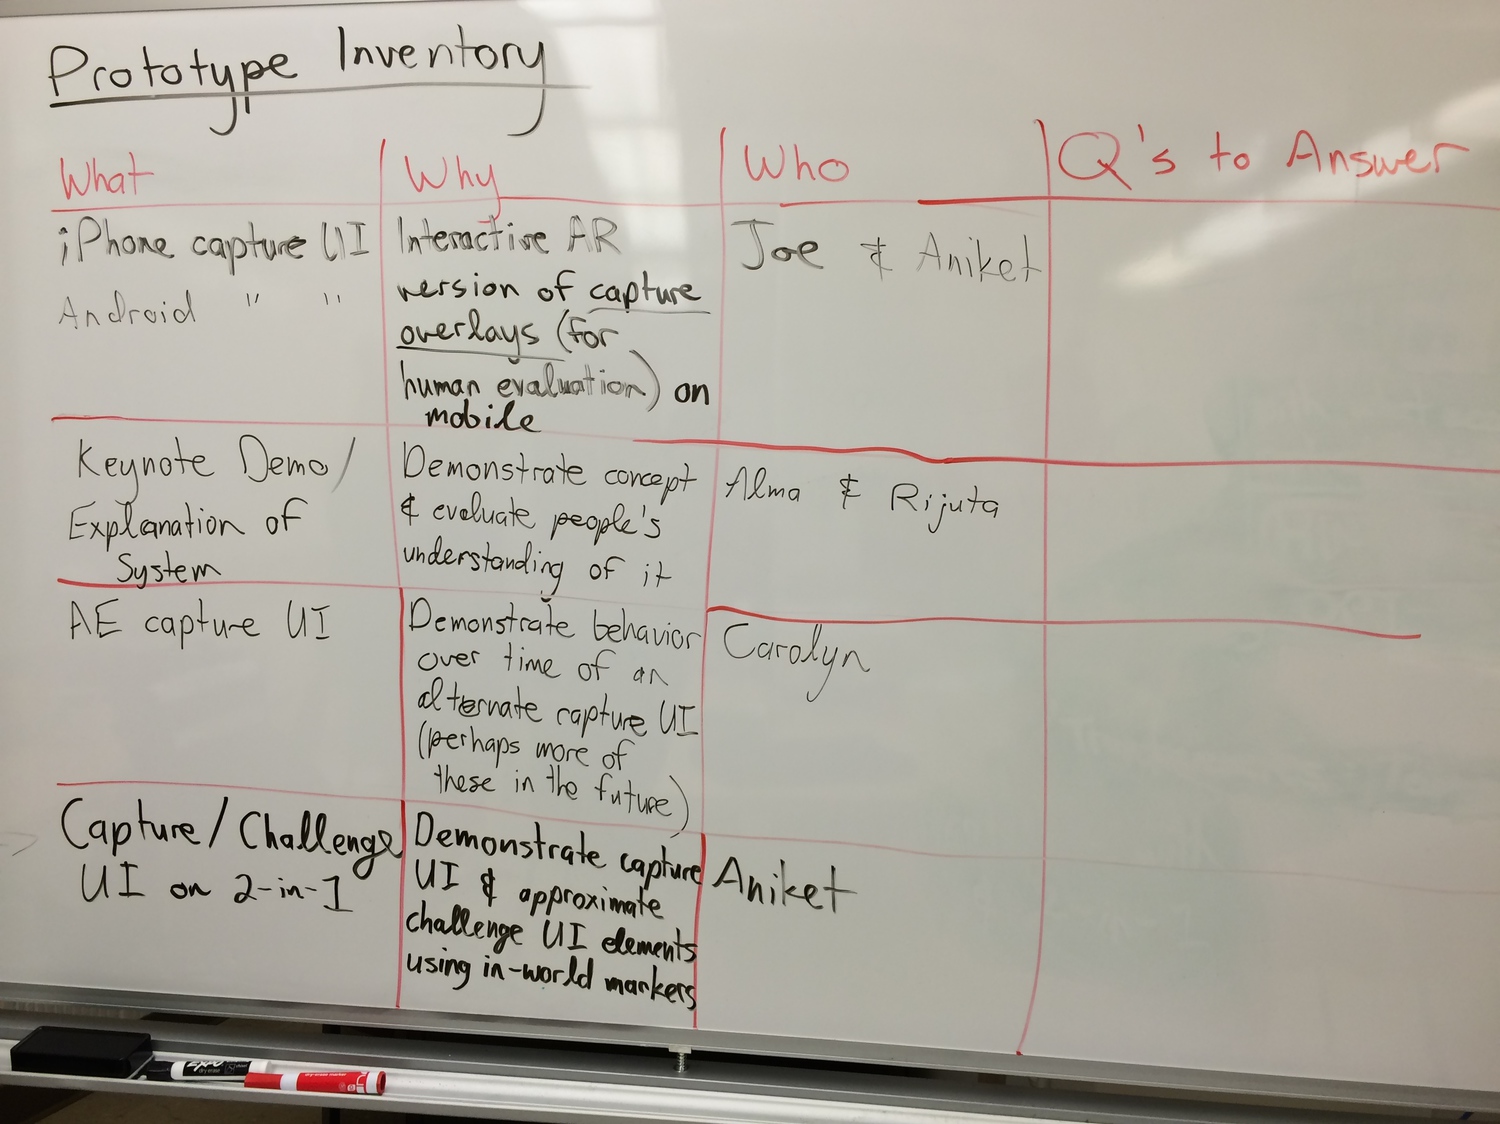 Prototype Inventory
What
Why
Who
Q's to Answer
iPhone capture UI
Android " "
Interactive AR
version of capture
overlays (for
human evaluation) on
mobile
Joe & Aniket
Keynote Demo/
Explanation of
System
Demonstrate concept
& evaluate people's
understanding of it
Alma & Rijuta
AE capture UI
Demonstrate behavior
over time of an
alternate capture UI
(perhaps more of
these in the future)
Carolyn
Capture/Challenge
UI on 2-in-1
Demonstrate capture
UI & approximate
challenge UI elements
using in-world markers
Aniket
EXPO